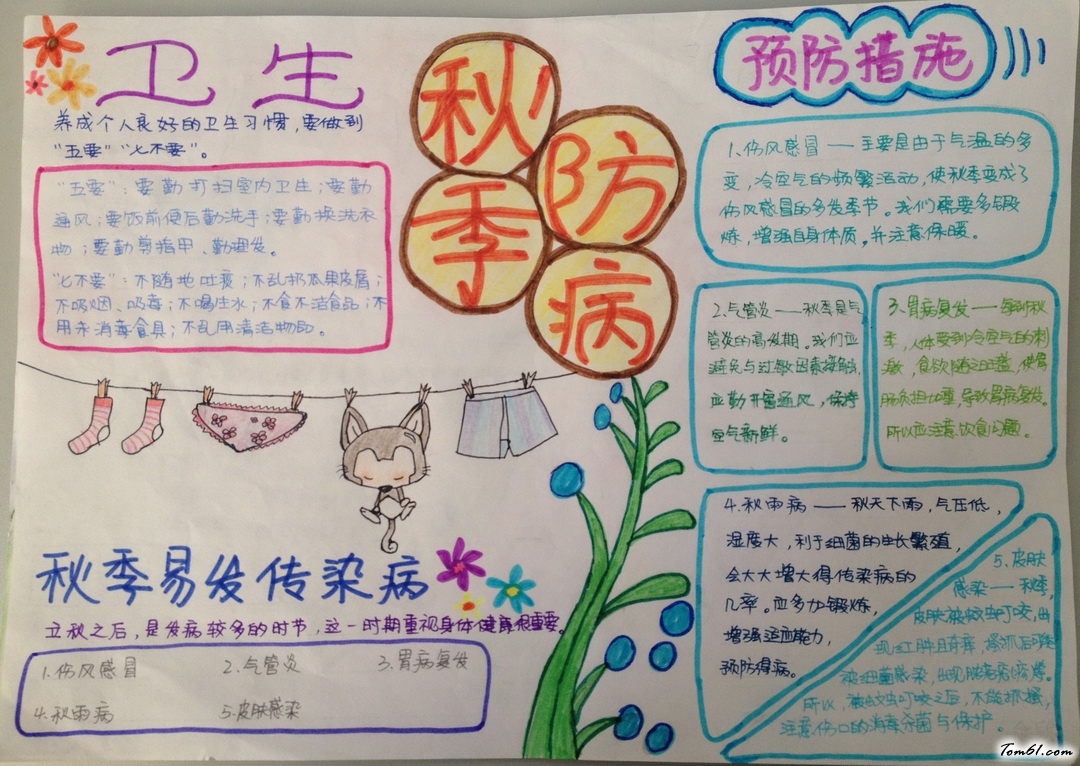 卫生
养成个人良好的卫生习惯，要做到
"五要""七不要"。
"五要"：要勤打扫室内卫生；要勤
通风；要饭前便后勤洗手；要勤换洗衣
物；要勤剪指甲、勤理发。
"七不要"：不随地吐痰；不乱扔瓜果皮屑；
不吸烟、吸毒；不喝生水；不食不洁食品；不
用未消毒食具；不乱用清洁物品。
秋季防病
预防措施
1、伤风感冒——主要是由于气温的多
变，冷空气的频繁活动，使秋季变成了
伤风感冒的多发季节。我们需要多锻
炼，增强自身体质，并注意保暖。
2、气管炎——秋季是气
管炎的高发期。我们应
避免与过敏因素接触，
应勤开窗通风，保持
空气新鲜。
3、胃病复发——每到秋
季，人体受到冷空气的刺
激，食欲随之旺盛，使胃
肠负担加重，导致胃病复发。
所以应注意饮食问题。
4、秋雨病——秋天下雨，气压低，
湿度大，利于细菌的生长繁殖，
会大大增大得传染病的
几率。应多加锻炼，
增强适应能力，
预防得病。
5、皮肤
感染——秋季，
皮肤被蚊虫叮咬，出
现红肿且奇痒，搔抓后可能
被细菌感染，出现脓疮
所以，被蚊虫叮咬之后，不能抓搔，
注意伤口的消毒杀菌与保护。
秋季易发传染病
立秋之后，是发病较多的时节，这一时期重视身体健康很重要。
1、伤风感冒 2、气管炎 3、胃病复发
4、秋雨病 5、皮肤感染
Tom61.com